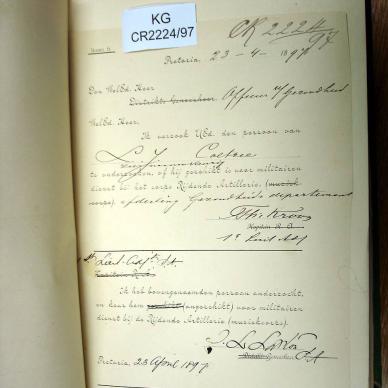 KG
CR2224/97
CR 2224/97
Pretoria, 23-4-1897
Den WelEd. Heer
Distrikts Geneesheer. Officier v/ Gezondheid
WelEd. Heer,
Ik verzoek UEd. den persoon van
L J Coetzee
te onderzoeken, of hij geschikt is voor militairen
dienst bij het corps Rijdende Artillerie, (muziek-
corps), afdeeling Gezondheids departement
Kapitein R. A.
1e Luit Adj
Luit-Adjt S.A.
Kapitein R. A.
Ik heb bovengenoemden persoon onderzocht,
en deze hem geschikt (ongeschikt) voor militairen
dienst bij de Rijdende Artillerie (muziekcorps).
Pretoria, 23 April 1897